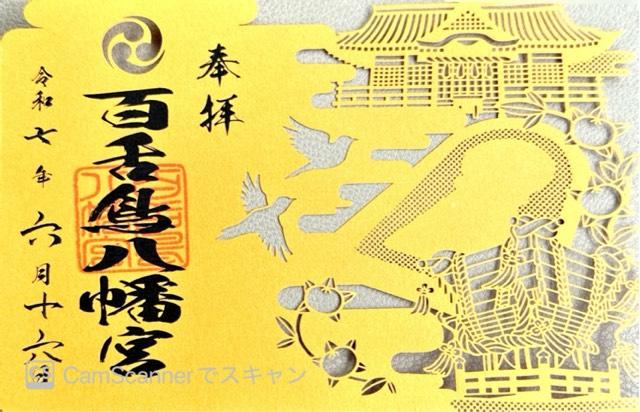 奉拝
百舌鳥八幡宮
令和七年六月十六日
CamScannerでスキャン